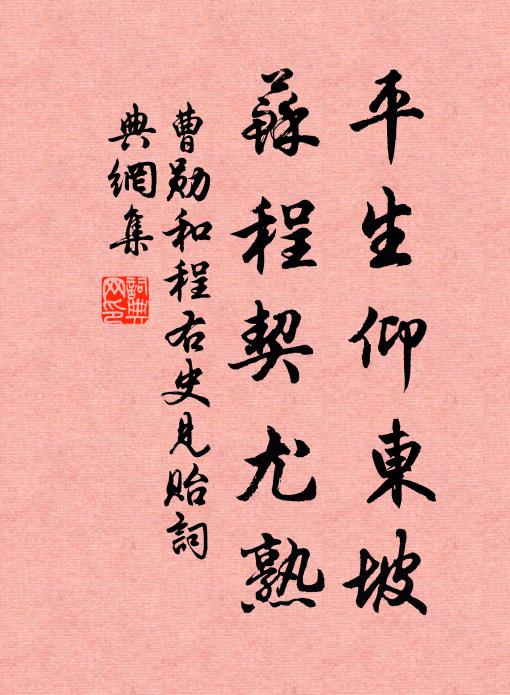 平生仰東坡
蘇程契尤熟
曹勛和程右史見貽詞
典網集
詞典
网印